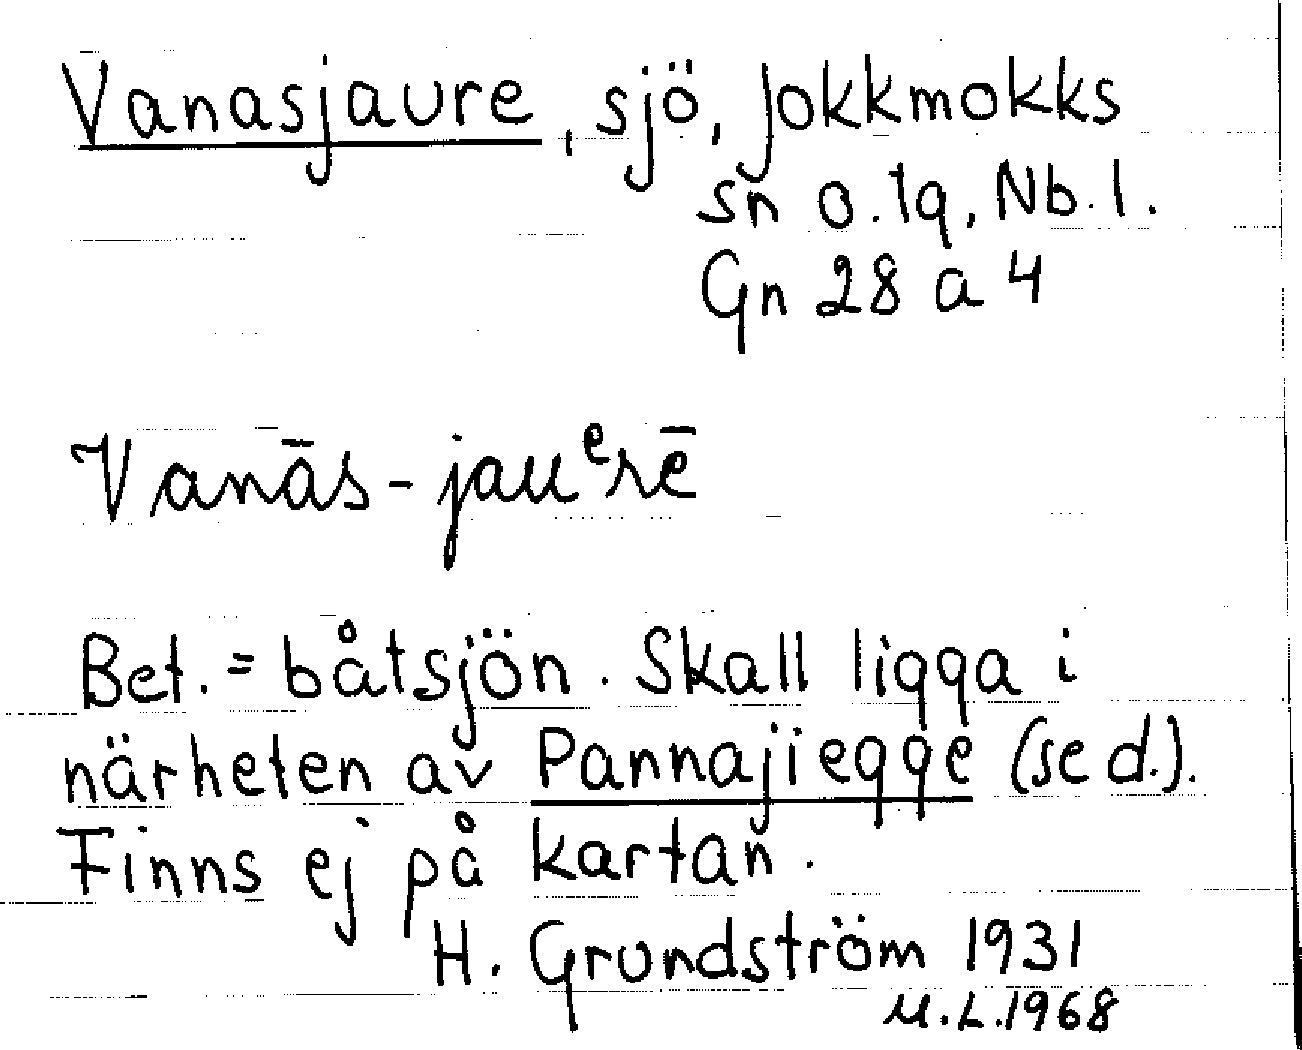 Vanasjaure, sjö, Jokkmokks
sn o. lq, Nb. l.
Gn 28 a 4
Vanās-jauᵉrē
Bet. = båtsjön. Skall ligga i
närheten av Pannajiegge (se d.).
Finns ej på kartan.
H. Grundström 1931
M.L. 1968